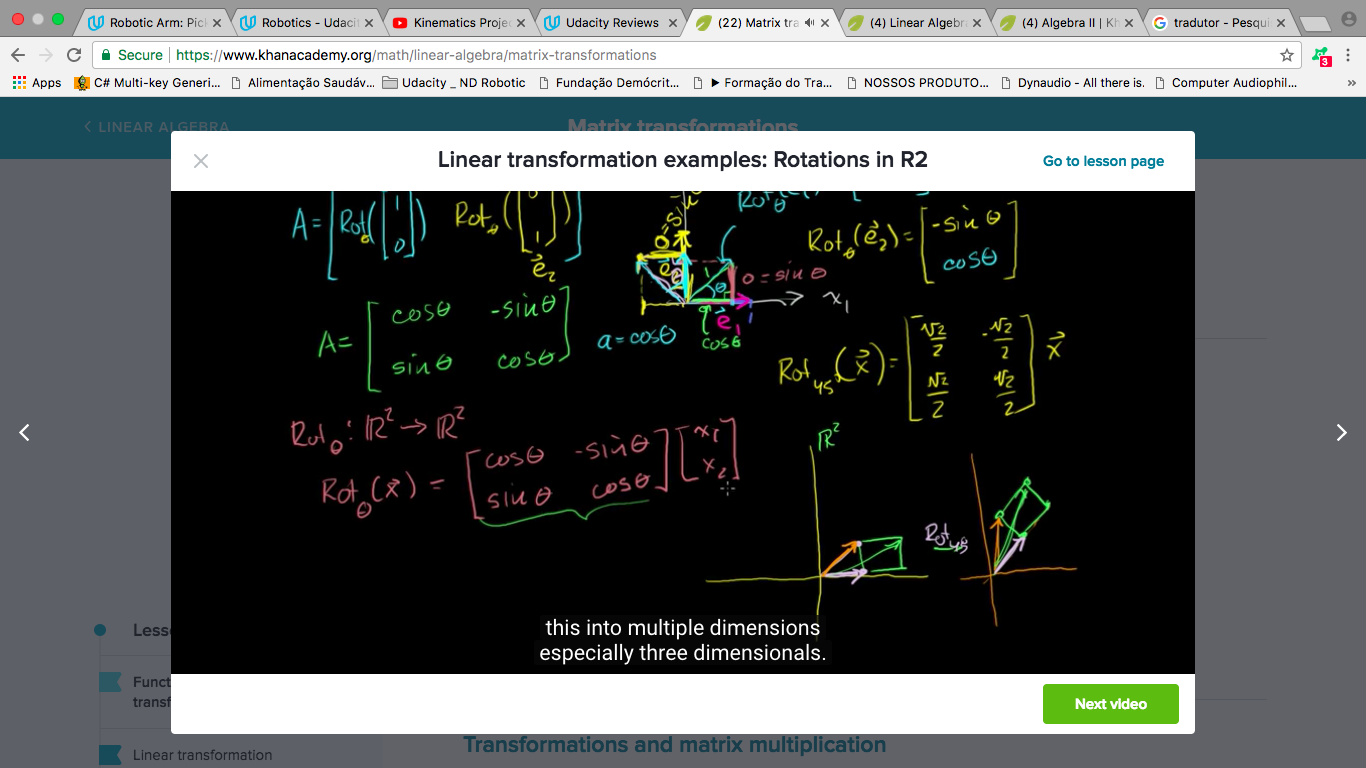 Robotic Arm: Pic
Robotics - Udaci
Kinematics Projec
Udacity Reviews
(22) Matrix tra
(4) Linear Algebra
(4) Algebra II | Kh
tradutor - Pesqui
Secure https://www.khanacademy.org/math/linear-algebra/matrix-transformations
3
Apps
C# Multi-key Generi...
Alimentação Saudáv...
Udacity _ ND Robotic
Fundação Demócrit...
▶ Formação do Tra...
NOSSOS PRODUTO...
Dynaudio - All there is.
Computer Audiophil...
»
< LINEAR ALGEBRA
Matrix transformations
Linear transformation examples: Rotations in R2
Go to lesson page
A = [Rotθ([1 0]) Rotθ([0 1])]
e⃗₂
Rotθ(e⃗₂) = [-sinθ cosθ]
o = sinθ
x₁
e⃗₁
a = cosθ
cosθ
A = [cosθ -sinθ
sinθ cosθ]
Rot₄₅°(x⃗) = [√2/2 -√2/2
√2/2 √2/2] x⃗
Rotθ: ℝ² → ℝ²
Rotθ(x⃗) = [cosθ -sinθ
sinθ cosθ] [x₁ x₂]
ℝ²
Rot₄₅°
this into multiple dimensions
especially three dimensionals.
Next video
Less
Funct
transf
Linear transformation
Transformations and matrix multiplication